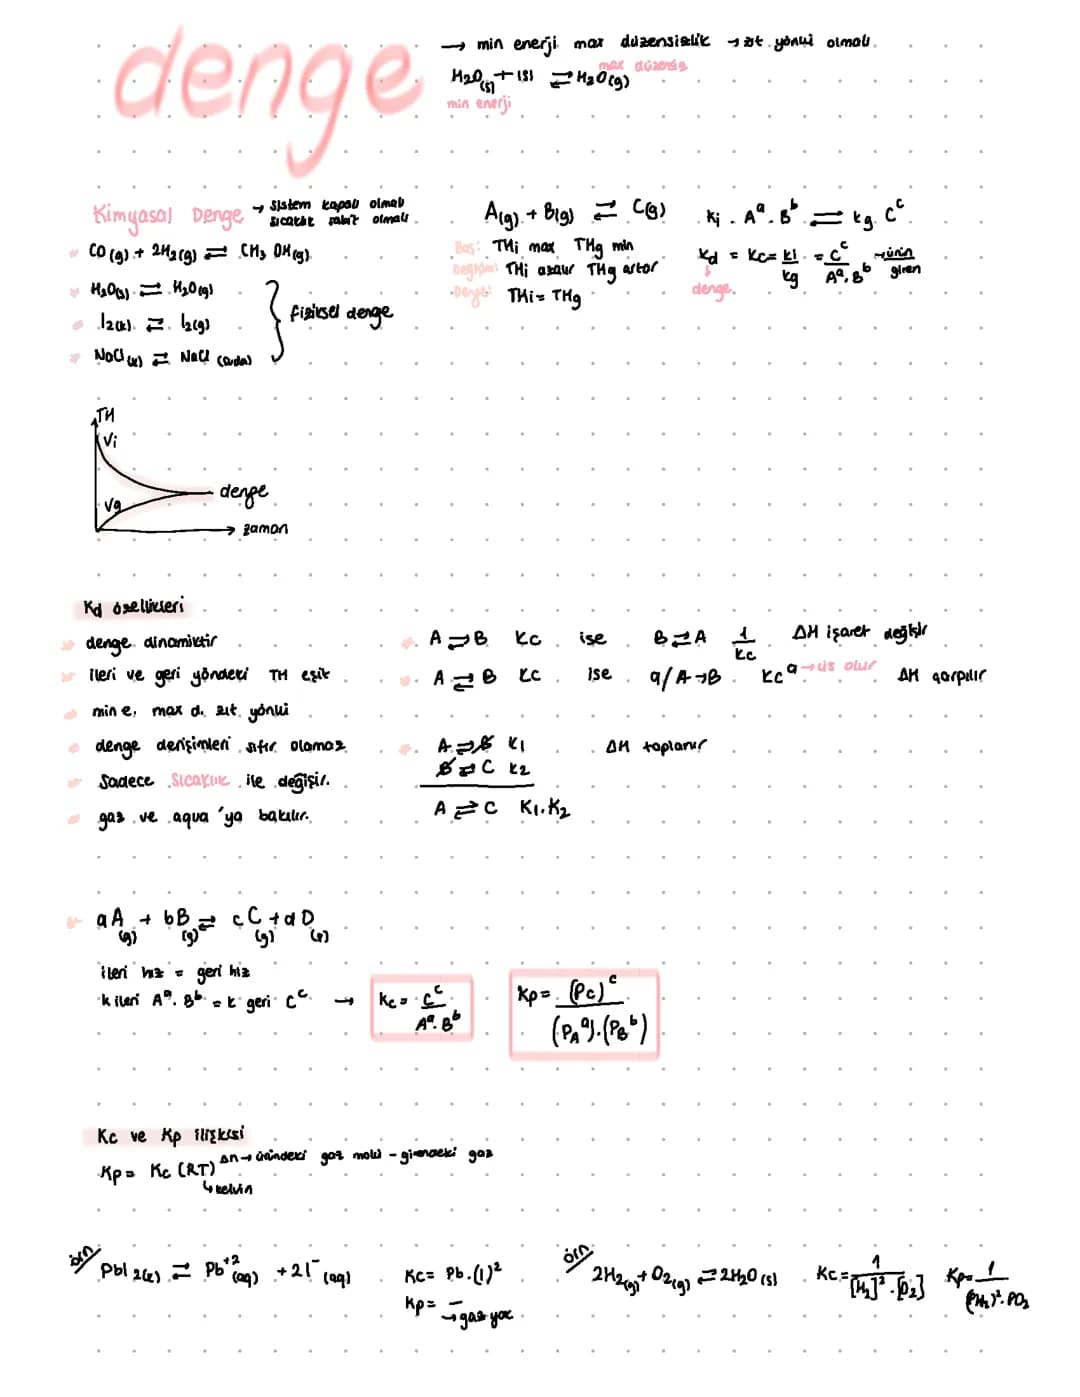 denge
→ min enerji max düzensizlik → zıt yönlü olmalı.
max düzensiz
H₂O(s) + ısı ⇌ H₂O(g)
min enerji
Kimyasal Denge → sistem kapalı olmalı
sıcaklık sabit olmalı
CO(g) + 2H₂(g) ⇌ CH₃OH(g)
H₂O(s) ⇌ H₂O(g)
I₂(k) ⇌ I₂(g)
NaCl(k) ⇌ NaCl(suda)
fiziksel denge
A(g) + B(g) ⇌ C(g)
Baş: THi max THg min
Değişim: THi azalır THg artar
Denge: THi = THg
ki . Aᵃ . Bᵇ = kg . Cᶜ
Kd = Kc = ki/kg = Cᶜ/Aᵃ.Bᵇ → ürün
giren
denge.
TH
Vi
Vg
denge
zaman
Kd özellikleri
denge dinamiktir
ileri ve geri yöndeki TH eşit
min e, max d. zıt yönlü
denge derişimleri sıfır olamaz
Sadece sıcaklık ile değişir.
gaz ve aqua'ya bakılır.
A ⇌ B Kc ise B ⇌ A 1/Kc ΔH işaret değişir
A ⇌ B Kc ise a/A→B Kcᵃ → üs olur ΔH çarpılır
A ⇌ B K1 ΔH toplanır
B ⇌ C K2
A ⇌ C K₁.K₂
aA(g) + bB(g) ⇌ cC(g) + dD(s)
ileri hız = geri hız
k ileri Aᵃ.Bᵇ = k geri Cᶜ → Kc = Cᶜ/Aᵃ.Bᵇ
Kp = (Pc)ᶜ/(P_Aᵃ).(P_Bᵇ)
Kc ve Kp ilişkisi
Kp = Kc (RT)^Δn → üründeki gaz molü - girendeki gaz
↳ kelvin
örn
PbI₂(k) ⇌ Pb⁺²(aq) + 2I⁻(aq)
Kc = Pb.(I)²
Kp = —
→ gaz yok
örn
2H₂(g) + O₂(g) ⇌ 2H₂O(s)
Kc = 1/[H₂]².[O₂] Kp = 1/(PH₂)².PO₂